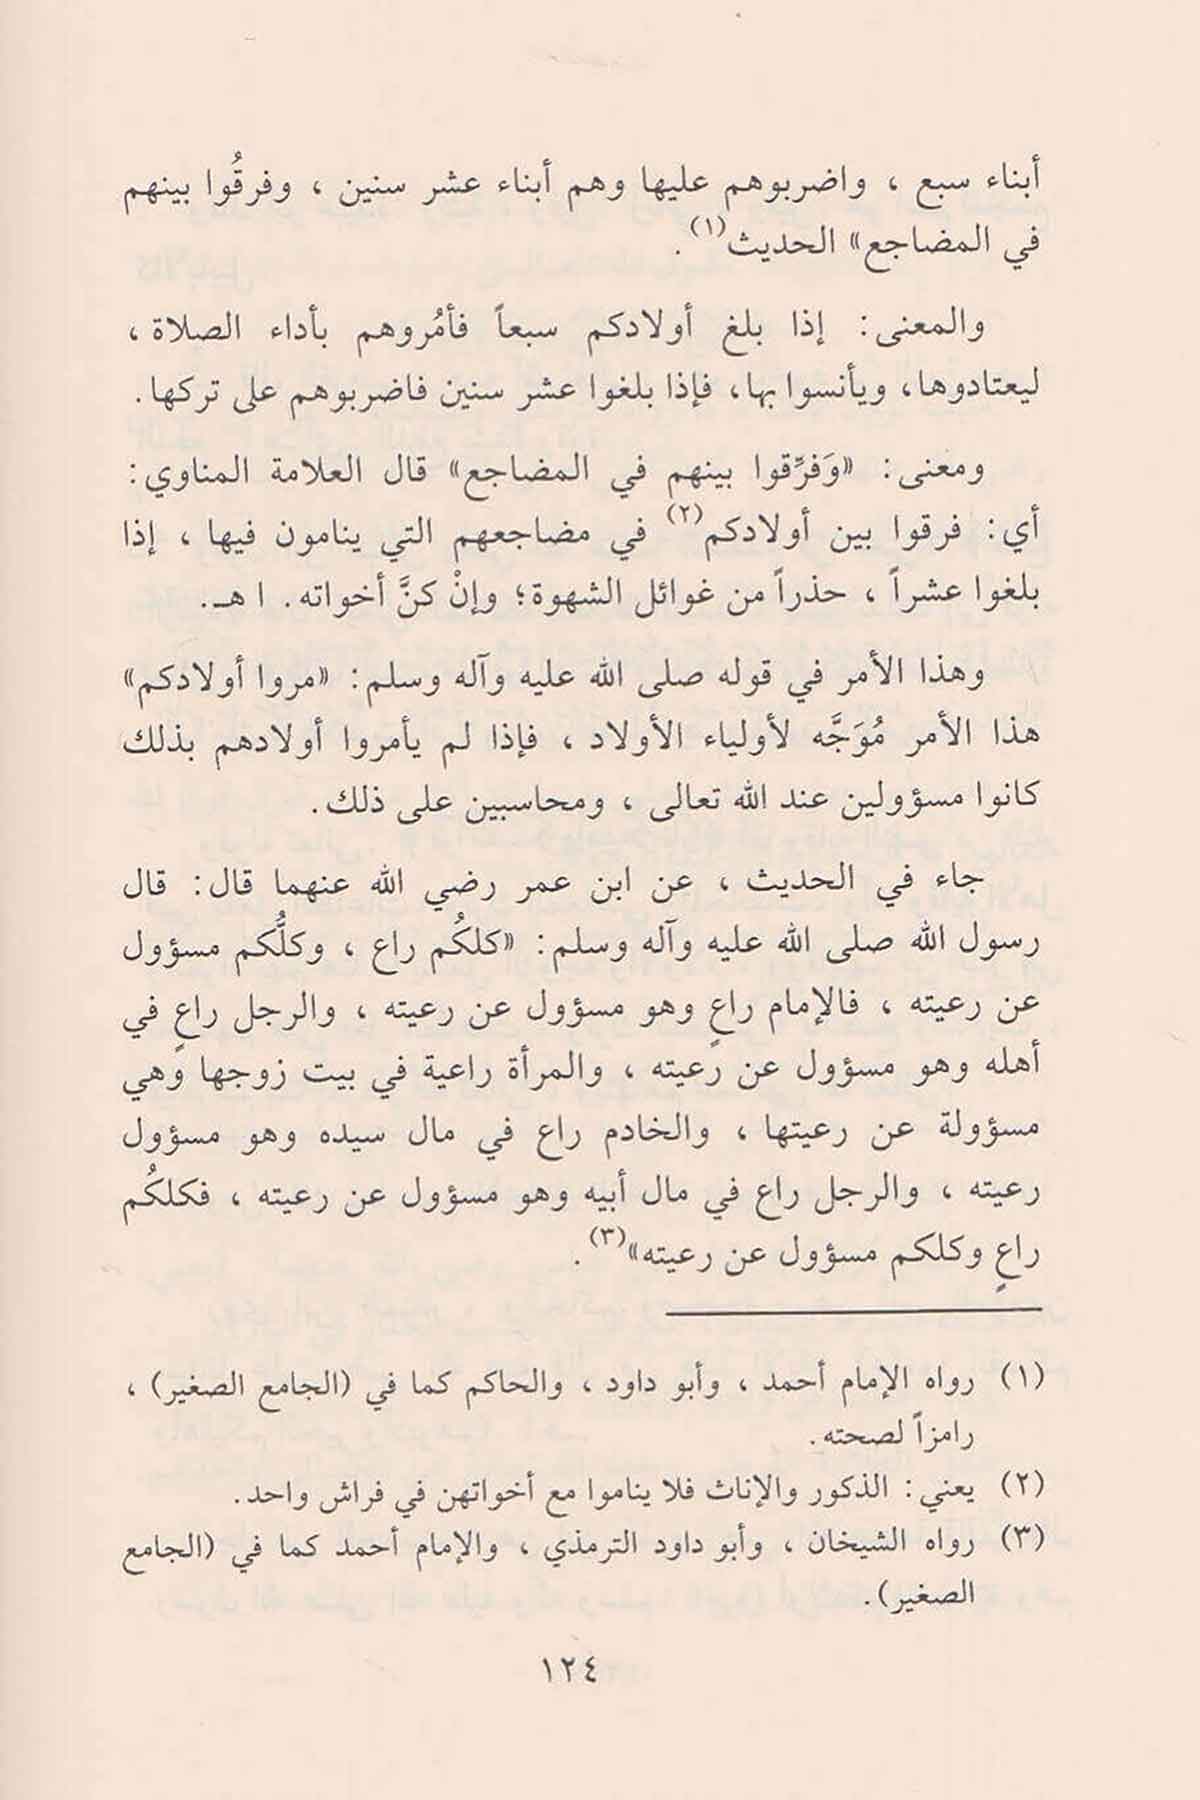 أبناء سبع ، واضربوهم عليها وهم أبناء عشر سنين ، وفرقُوا بينهم
في المضاجع» الحديث(١).
والمعنى: إذا بلغ أولادكم سبعاً فأمُروهم بأداء الصلاة ،
ليعتادوها، ويأنسوا بها، فإذا بلغوا عشر سنين فاضربوهم على تركها.
ومعنى: «وَفرِّقوا بينهم في المضاجع» قال العلامة المناوي:
أي: فرقوا بين أولادكم(٢) في مضاجعهم التي ينامون فيها ، إذا
بلغوا عشراً ، حذراً من غوائل الشهوة؛ وإنْ كنَّ أخواته. ا هـ.
وهذا الأمر في قوله صلى الله عليه وآله وسلم: «مروا أولادكم»
هذا الأمر مُوَجَّه لأولياء الأولاد ، فإذا لم يأمروا أولادهم بذلك
كانوا مسؤولين عند الله تعالى ، ومحاسبين على ذلك.
جاء في الحديث ، عن ابن عمر رضي الله عنهما قال: قال
رسول الله صلى الله عليه وآله وسلم: «كلكُم راع ، وكلُّكم مسؤول
عن رعيته ، فالإمام راعٍ وهو مسؤول عن رعيته ، والرجل راعٍ في
أهله وهو مسؤول عن رعيته ، والمرأة راعية في بيت زوجها وهي
مسؤولة عن رعيتها ، والخادم راع في مال سيده وهو مسؤول
رعيته ، والرجل راع في مال أبيه وهو مسؤول عن رعيته ، فكلكُم
راعٍ وكلكم مسؤول عن رعيته»(٣).
(١) رواه الإمام أحمد ، وأبو داود ، والحاكم كما في (الجامع الصغير) ،
رامزاً لصحته.
(٢) يعني: الذكور والإناث فلا يناموا مع أخواتهن في فراش واحد.
(٣) رواه الشيخان ، وأبو داود الترمذي ، والإمام أحمد كما في (الجامع
الصغير).
١٢٤